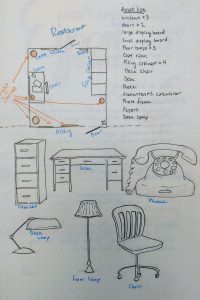 Restaurant
Asset list
windows x 3
doors x 2
large display board
Small display board
Floor lamps x 3
Coat rack
Filing cabinet x 4
Desk chair
Desk
Phone
Accountants calculator
Photo frame
Papers
Desk lamp
Door
Sliding
Door
Desk
Cabinet
Phone
Desk
Lamp
Floor lamp
Chair